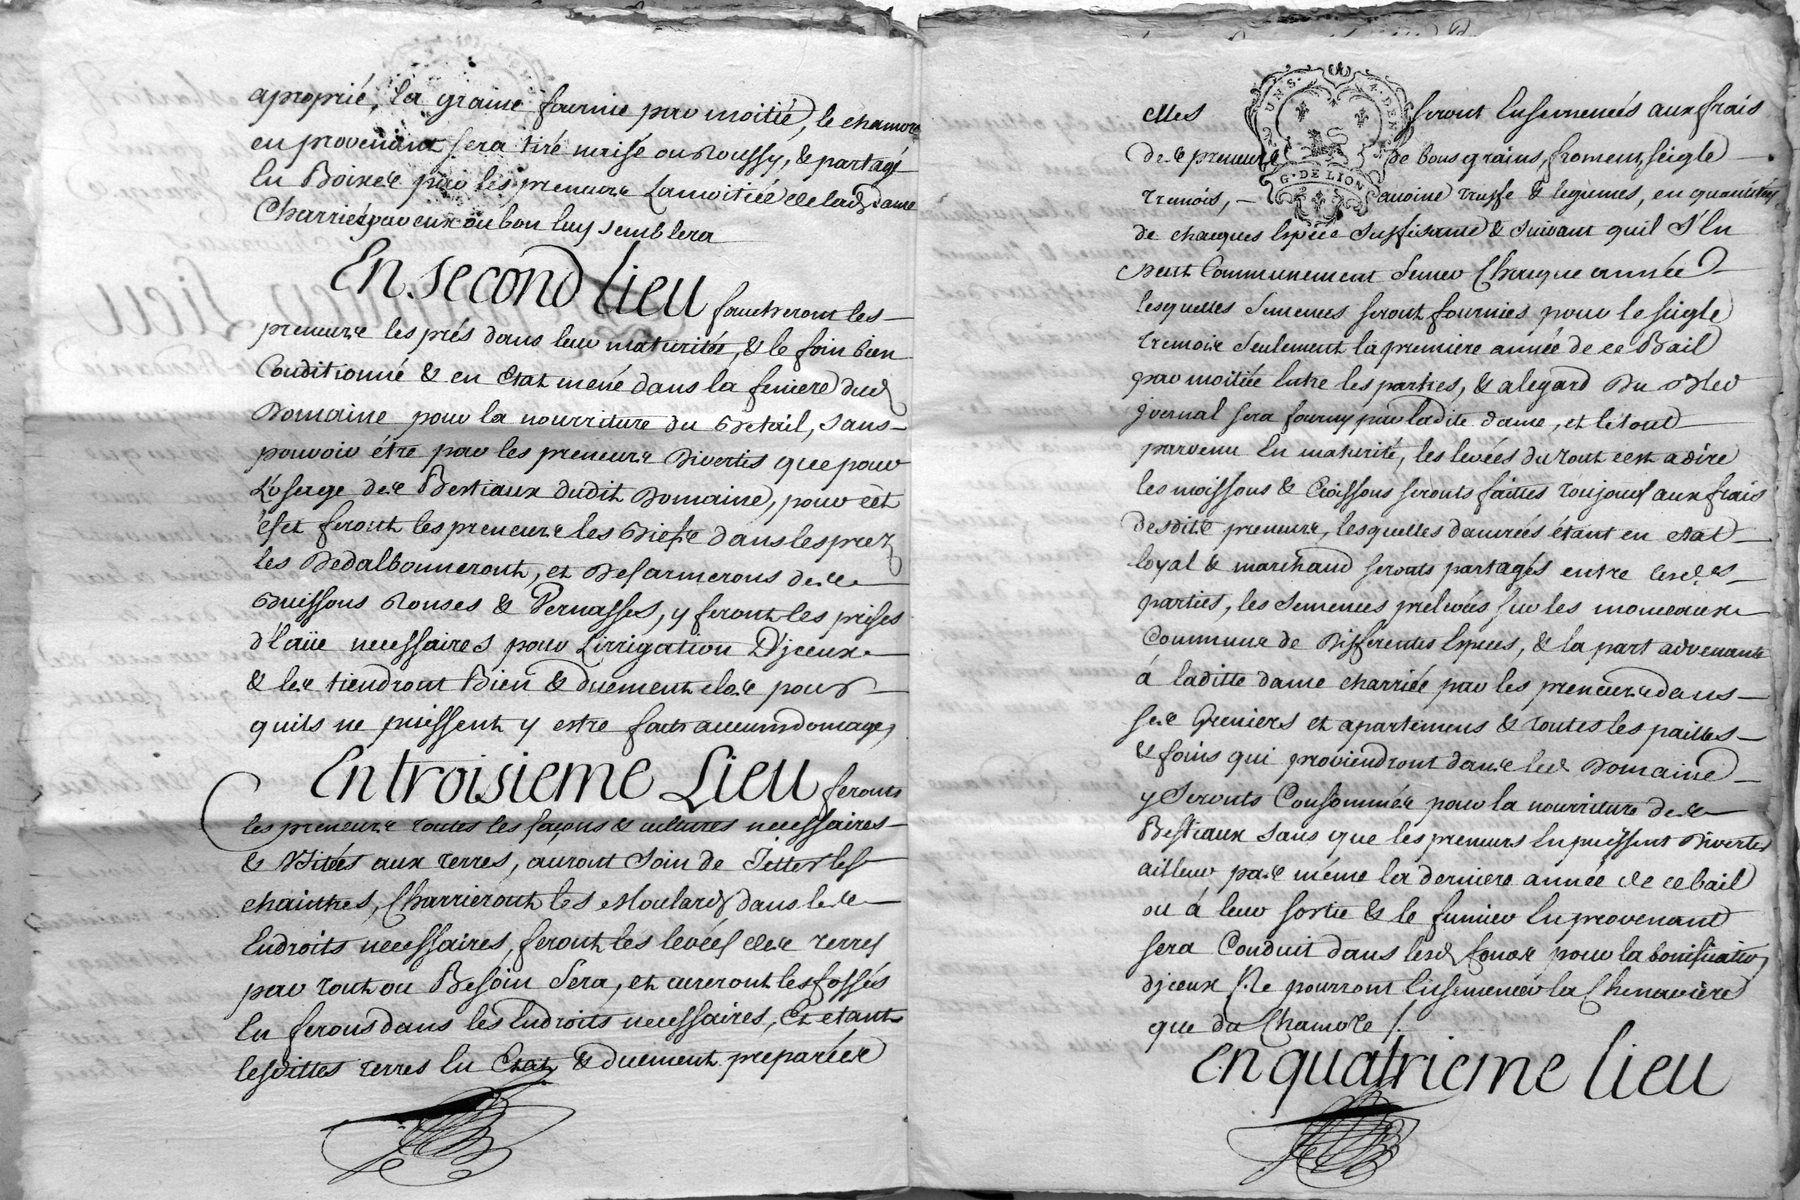 aproprié, la graine fournie par moitié, le chamvre
en provenant sera tiré naisé ou Roussy, & partagé
En par les preneurs La moitiée de lad dame
Charrié par eux où bon luy semblera
En second lieu faucheront les
preneurs les prés dans leur maturités, & le foin bien
Conditionné & en Etat mené dans la feniere dud
Domaine pour la nourriture du Bétail, sans
pouvoir être par les preneurs Divertis que pour
L'usage des Bestiaux dudit Domaine, pour cet
efet feront les preneurs les Biefs dans les prez
les Dedalbonneront, et Desarmerons des
Buissons Ronses & Vernasses, y feront les prises
d'Eaüe necessaires pour L'irrigation D'jceux
& les tiendront Bien & düement clos pour
quils ne puissent y estre faits aucuns domages
En troisieme Lieu ferons
les preneurs toutes les façons & cultures necessaires
& Usitées aux terres, auront soin de Jetter les
chaintres, Charrieront les Moulards dans les
Endroits necessaires, feront les levées des terres
par tout où Besoin sera, et cureront les fossés
En ferons dans les Endroits necessaires, Et etants
lesdittes terres En Etat & düement preparées
elles seront Ensemencés aux frais
des preneurs de bons grains, froment, seigle
tremois, avoine truffe & legumes, en quantités
de chacques Espéce suffisante & suivant quil s'En
peut Communement semer Chaque année
lesquelles semences seront fournies pour le seigle
tremois seulement la premiere année de ce Bail
par moitiée Entre les parties, & a legard Du Bled
jvernal sera fourny par ladite dame, et le tout
parvenu En maturité, les levées du tout cest a dire
les moissons & Croissons seronts faittes toujours aux frais
desdits preneurs, lesquelles danrées étant en etat
loyal & marchand seronts partagés entre lesdes
parties, les semences prelevées sur les monceaux
Communs de Differentes Espéces, & la part advenante
á laditte dame charriée par les preneurs dans
ses Greniers et apartemens & toutes les pailles
& foins qui proviendront dans led Domaine
y seronts Consommés pour la nourriture des
Bestiaux sans que les preneurs En puissent Divertir
ailleur pas même la derniere année de ce bail
ou á leur sortie & le fumier En provenant
sera Conduit dans lesd fonds pour la bonification
djceux Ne pourront Ensemencer la Chenaviere
que du Chamvre /.
En quatrieme lieu
G. DE LION